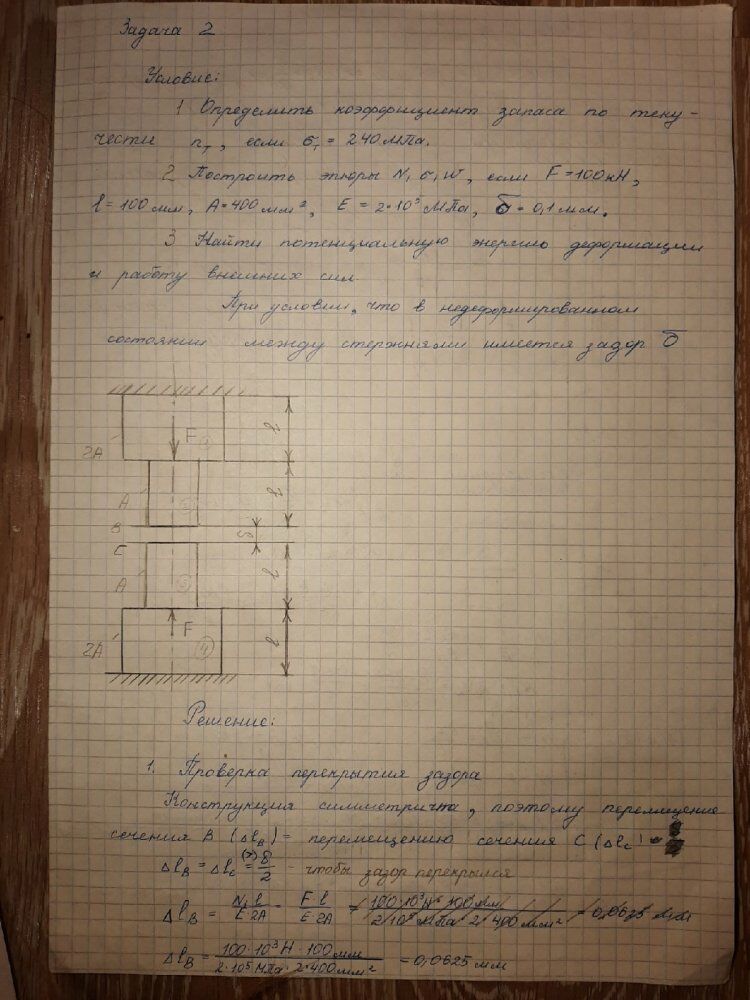 Задача 2
Условие:
1 Определить коэффициент запаса по теку-
чести nт, если σт = 240 МПа.
2 Построить эпюры N, σ, W, если F = 100 кН,
l = 100 мм, A = 400 мм², E = 2·10⁵ МПа, δ = 0,1 мм.
3 Найти потенциальную энергию деформации
и работу внешних сил.
При условии, что в недеформированном
состоянии между стержнями имеется зазор δ
2A
F
l
A
l
B
δ
C
A
3
l
F
2A
4
l
Решение:
1. Проверка перекрытия зазора
Конструкция симметрична, поэтому перемещение
сечения B (ΔlB) = перемещению сечения C (Δlc)
ΔlB = Δlc (≥) = δ/2 - чтобы зазор перекрылся
ΔlB = N₁·l / E·2A = F·l / E·2A = 100·10³ Н · 100 мм / 2·10⁵ МПа · 2·400 мм² = 0,0625 мм
ΔlB = 100·10³ Н · 100 мм / 2·10⁵ МПа · 2·400 мм² = 0,0625 мм